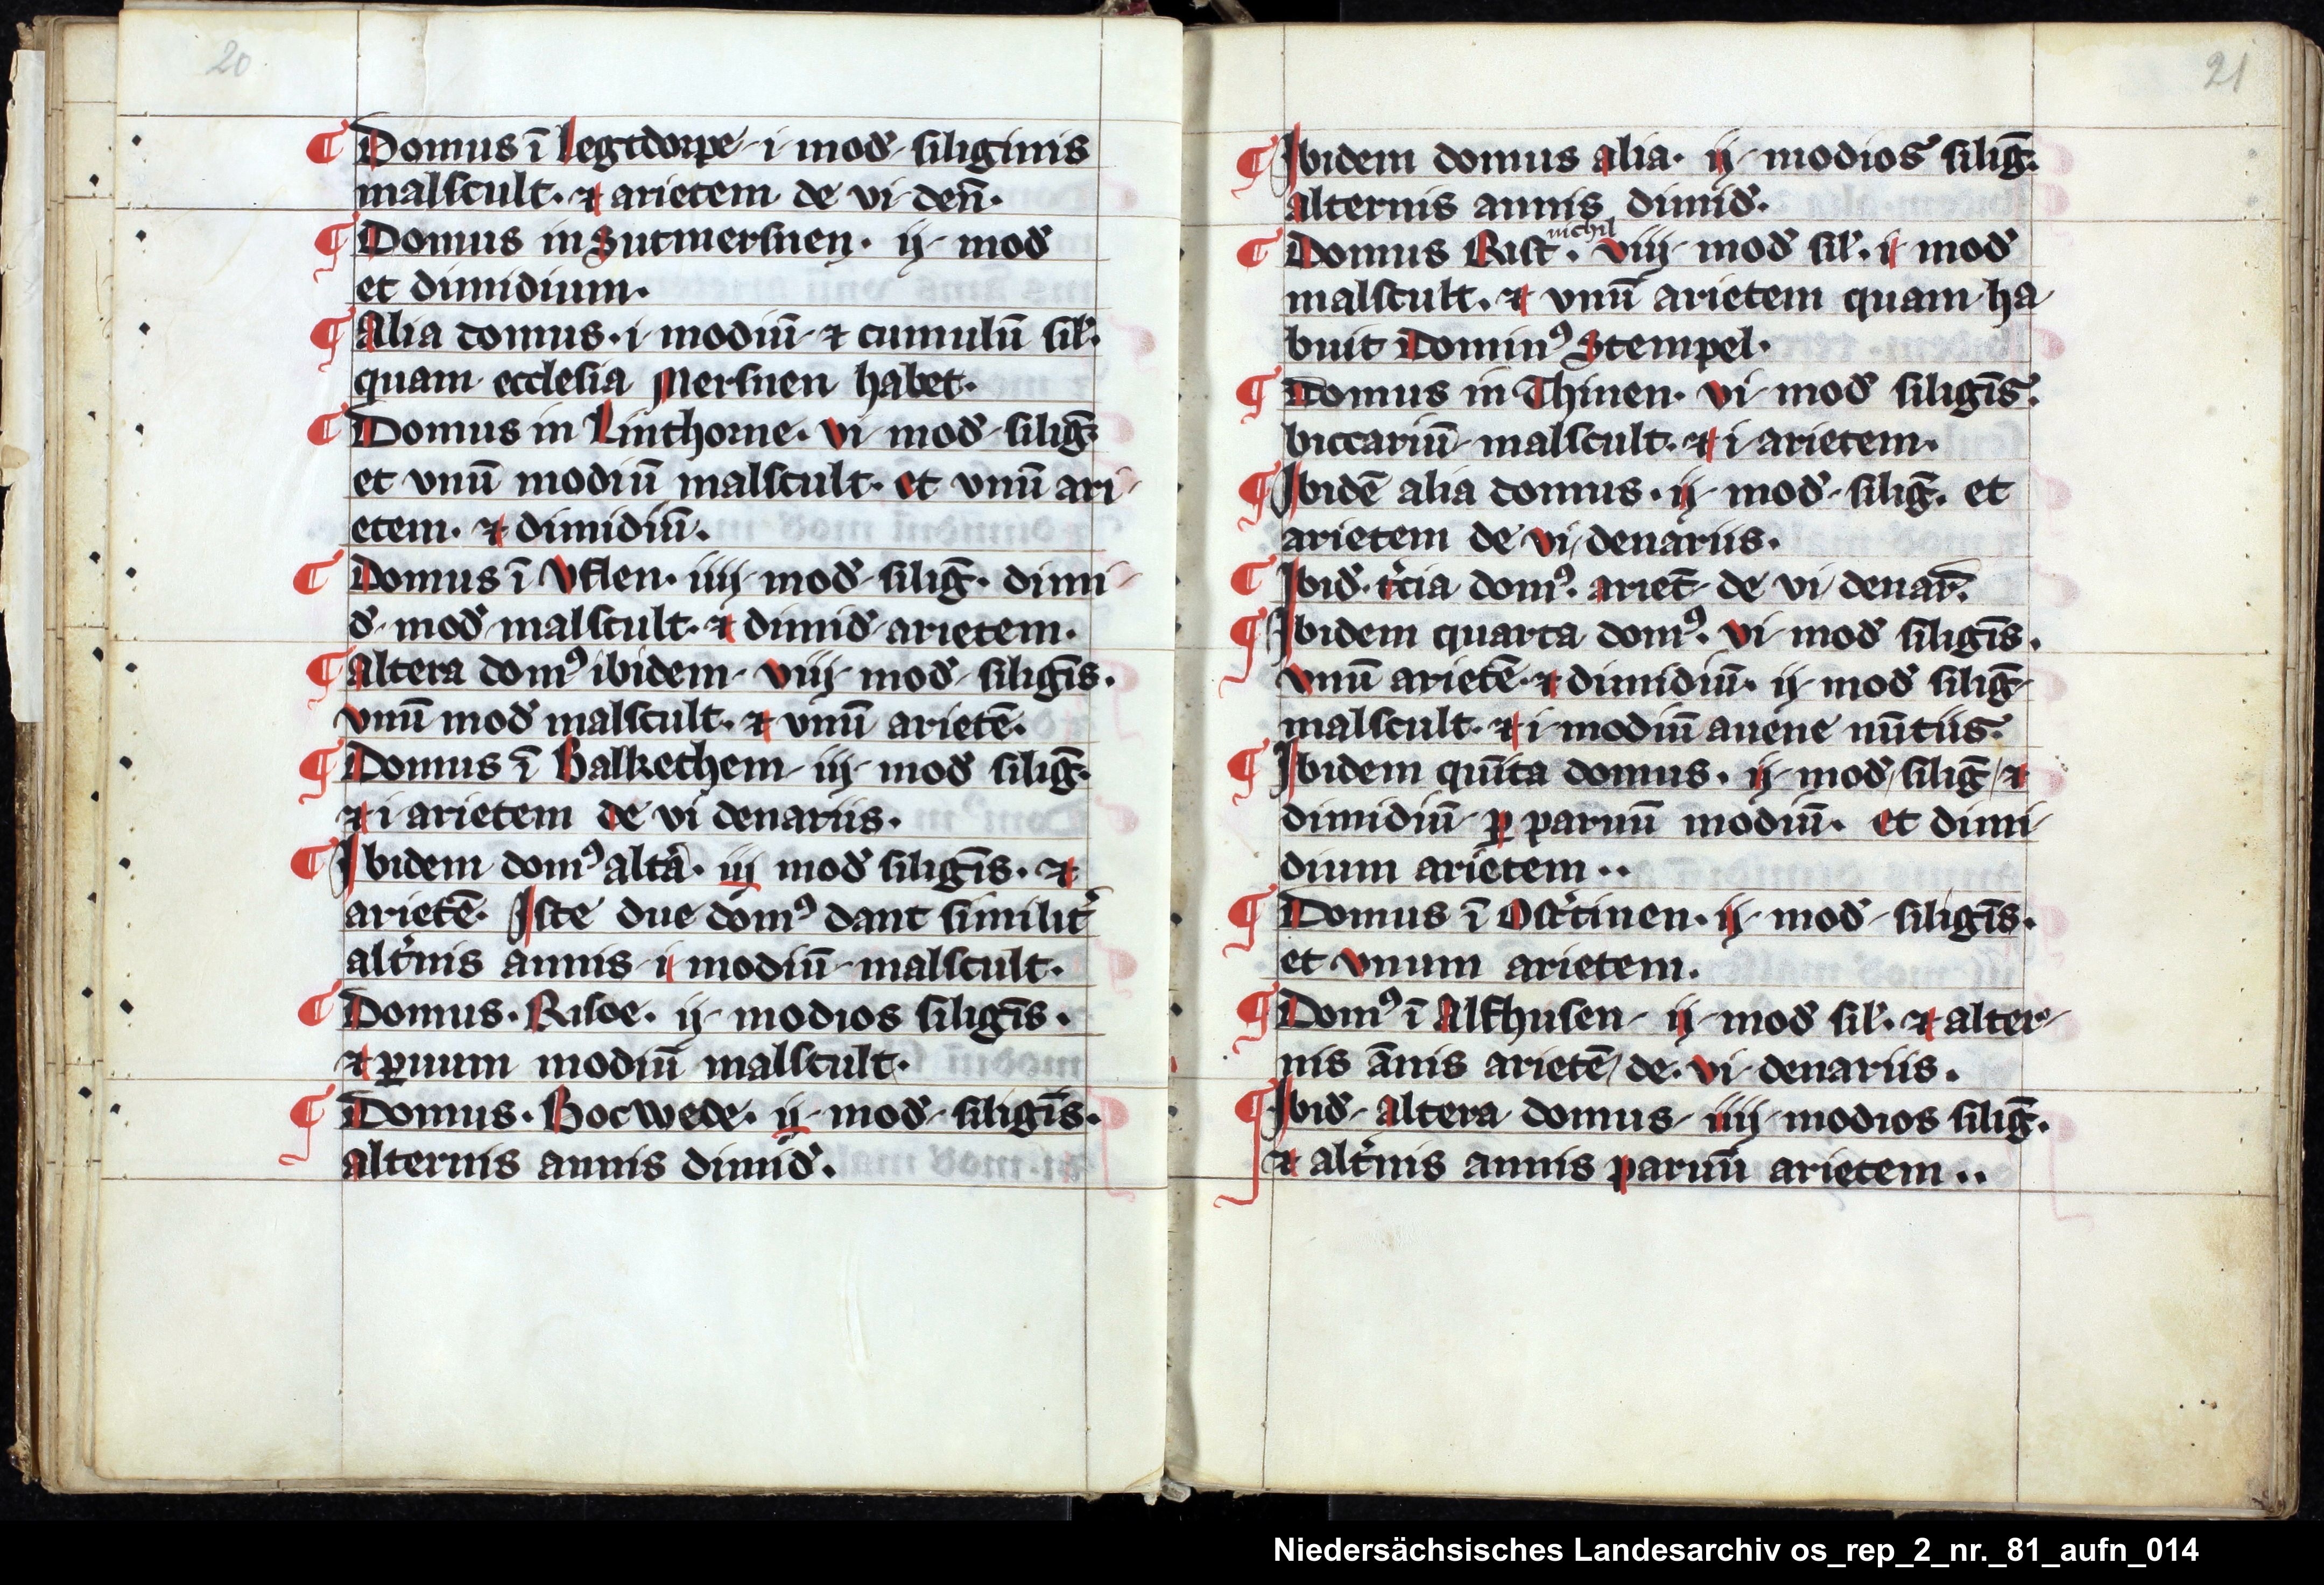 20
¶ Domus ī Legtdorpe · i · mod̄ · siliginis
malscult. ⁊ arietem de vi den̄.
¶ Domus in Sutmersnen. ij mod̄
et dimidium.
¶ Alia domus. i modiū ⁊ cumulū sil'.
quam ecclesia Mersnen habet.
¶ Domus in Linthorne. vi mod̄ siliḡ.
et vnū modiū malscult. et vnū ari-
etem. ⁊ dimidiū.
¶ Domus ī Vflen. iiij mod̄ siliḡ. dimi-
d̄ mod̄ malscult. ⁊ dimid̄ arietem.
¶ Altera domꝰ ibidem viij mod̄ siliḡis.
vnū mod̄ malscult. ⁊ vnū arietē.
¶ Domus ī Balkethem iij mod̄ siliḡ.
⁊ i arietem de vi denariis.
¶ Ibidem domꝰ altᵃ. iij mod̄ siliḡis. ⁊
arietē. Iste due domꝰ dant similit'
alt'nis annis i modiū malscult.
¶ Domus. Risoe. ij modios siliḡis.
⁊ ꝑuum modiū malscult.
¶ Domus. Bocwede. ij mod̄ siliḡis.
alternis annis dimid̄.
21
¶ Ibidem domus alia. ij modios siliḡ.
alternis annis dimid̄.
nichil
¶ Domus Rist. viij mod̄ sil'. i mod̄
malscult. ⁊ vnū arietem quam ha
buit Dominꝰ Stempel.
¶ Domus in Thinen. vi mod̄ siliḡis.
biccariū malscult. ⁊ i arietem.
¶ Ibidē alia domus. ij mod̄ siliḡ. et
arietem de vi denariis.
¶ Ibid̄. t'cia domꝰ. ariet̄ de vi denar̄.
¶ Ibidem quarta domꝰ. vi mod̄ siliḡis.
vnū arietē ⁊ dimidiū. ij mod̄ siliḡ
malscult. ⁊ i modiū auene nūtiis.
¶ Ibidem quīta domus. ij mod̄ siliḡ ⁊
dimidiū ꝑ paruū modiū. et dimi-
dium arietem..
¶ Domus ī Ost'tinen. ij mod̄ siliḡis.
et vnum arietem.
¶ Domꝰ ī Alfhusen ij mod̄ sil'. ⁊ alter-
nis ānis arietē de. vi denariis.
¶ Ibid̄ altera domus iiij modios siliḡ.
⁊ alt'nis annis paruū arietem..
Niedersächsisches Landesarchiv os_rep_2_nr._81_aufn_014